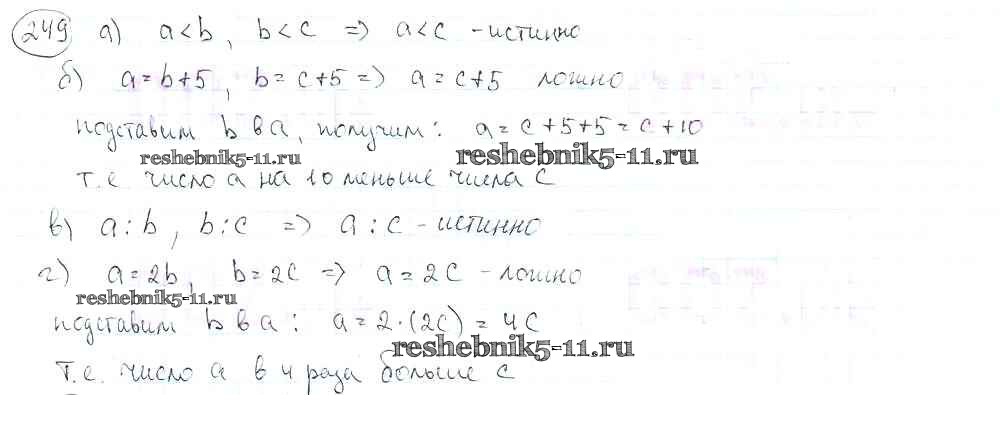 249 а) a < b , b < c => a < c - истинно
б) a = b+5 , b = c+5 => a = c+5 ложно
подставим b в a, получим: a = c+5+5 = c+10
reshebnik5-11.ru reshebnik5-11.ru
т.е. число a на 10 меньше числа c
в) a : b , b : c => a : c - истинно
г) a = 2b , b = 2c => a = 2c - ложно
reshebnik5-11.ru
подставим b в a : a = 2·(2c) = 4c
reshebnik5-11.ru
т.е. число a в 4 раза больше c